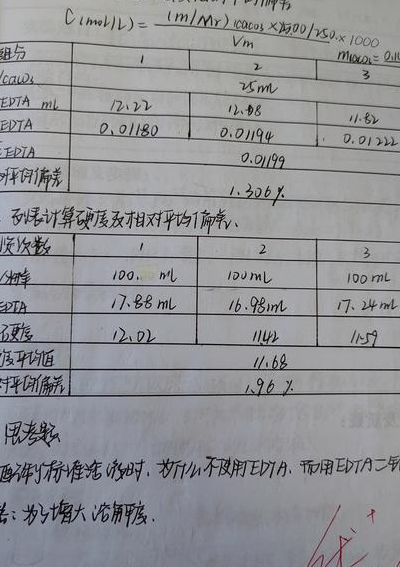 C(mol/L) = (m/Mr) CaCO3 × 25.00/250.0 × 1000
Vm
组分 1 2 3
CaCO3 25ml
EDTA ml 12.22 12.08 11.82
EDTA 0.01180 0.01194 0.01222
EDTA 0.01199
对平均偏差 1.306%
列表计算硬度及相对平均偏差、
次数 1 2 3
100. ml 100ml 100ml
EDTA 17.88ml 16.98ml 17.24ml
硬度 12.02 11.42 11.59
度平均值 11.68
对平均偏差 1.96%
思考题
配制标准溶液时，为什么不使用EDTA，而用EDTA二钠
答：为了增大溶解度.
优+